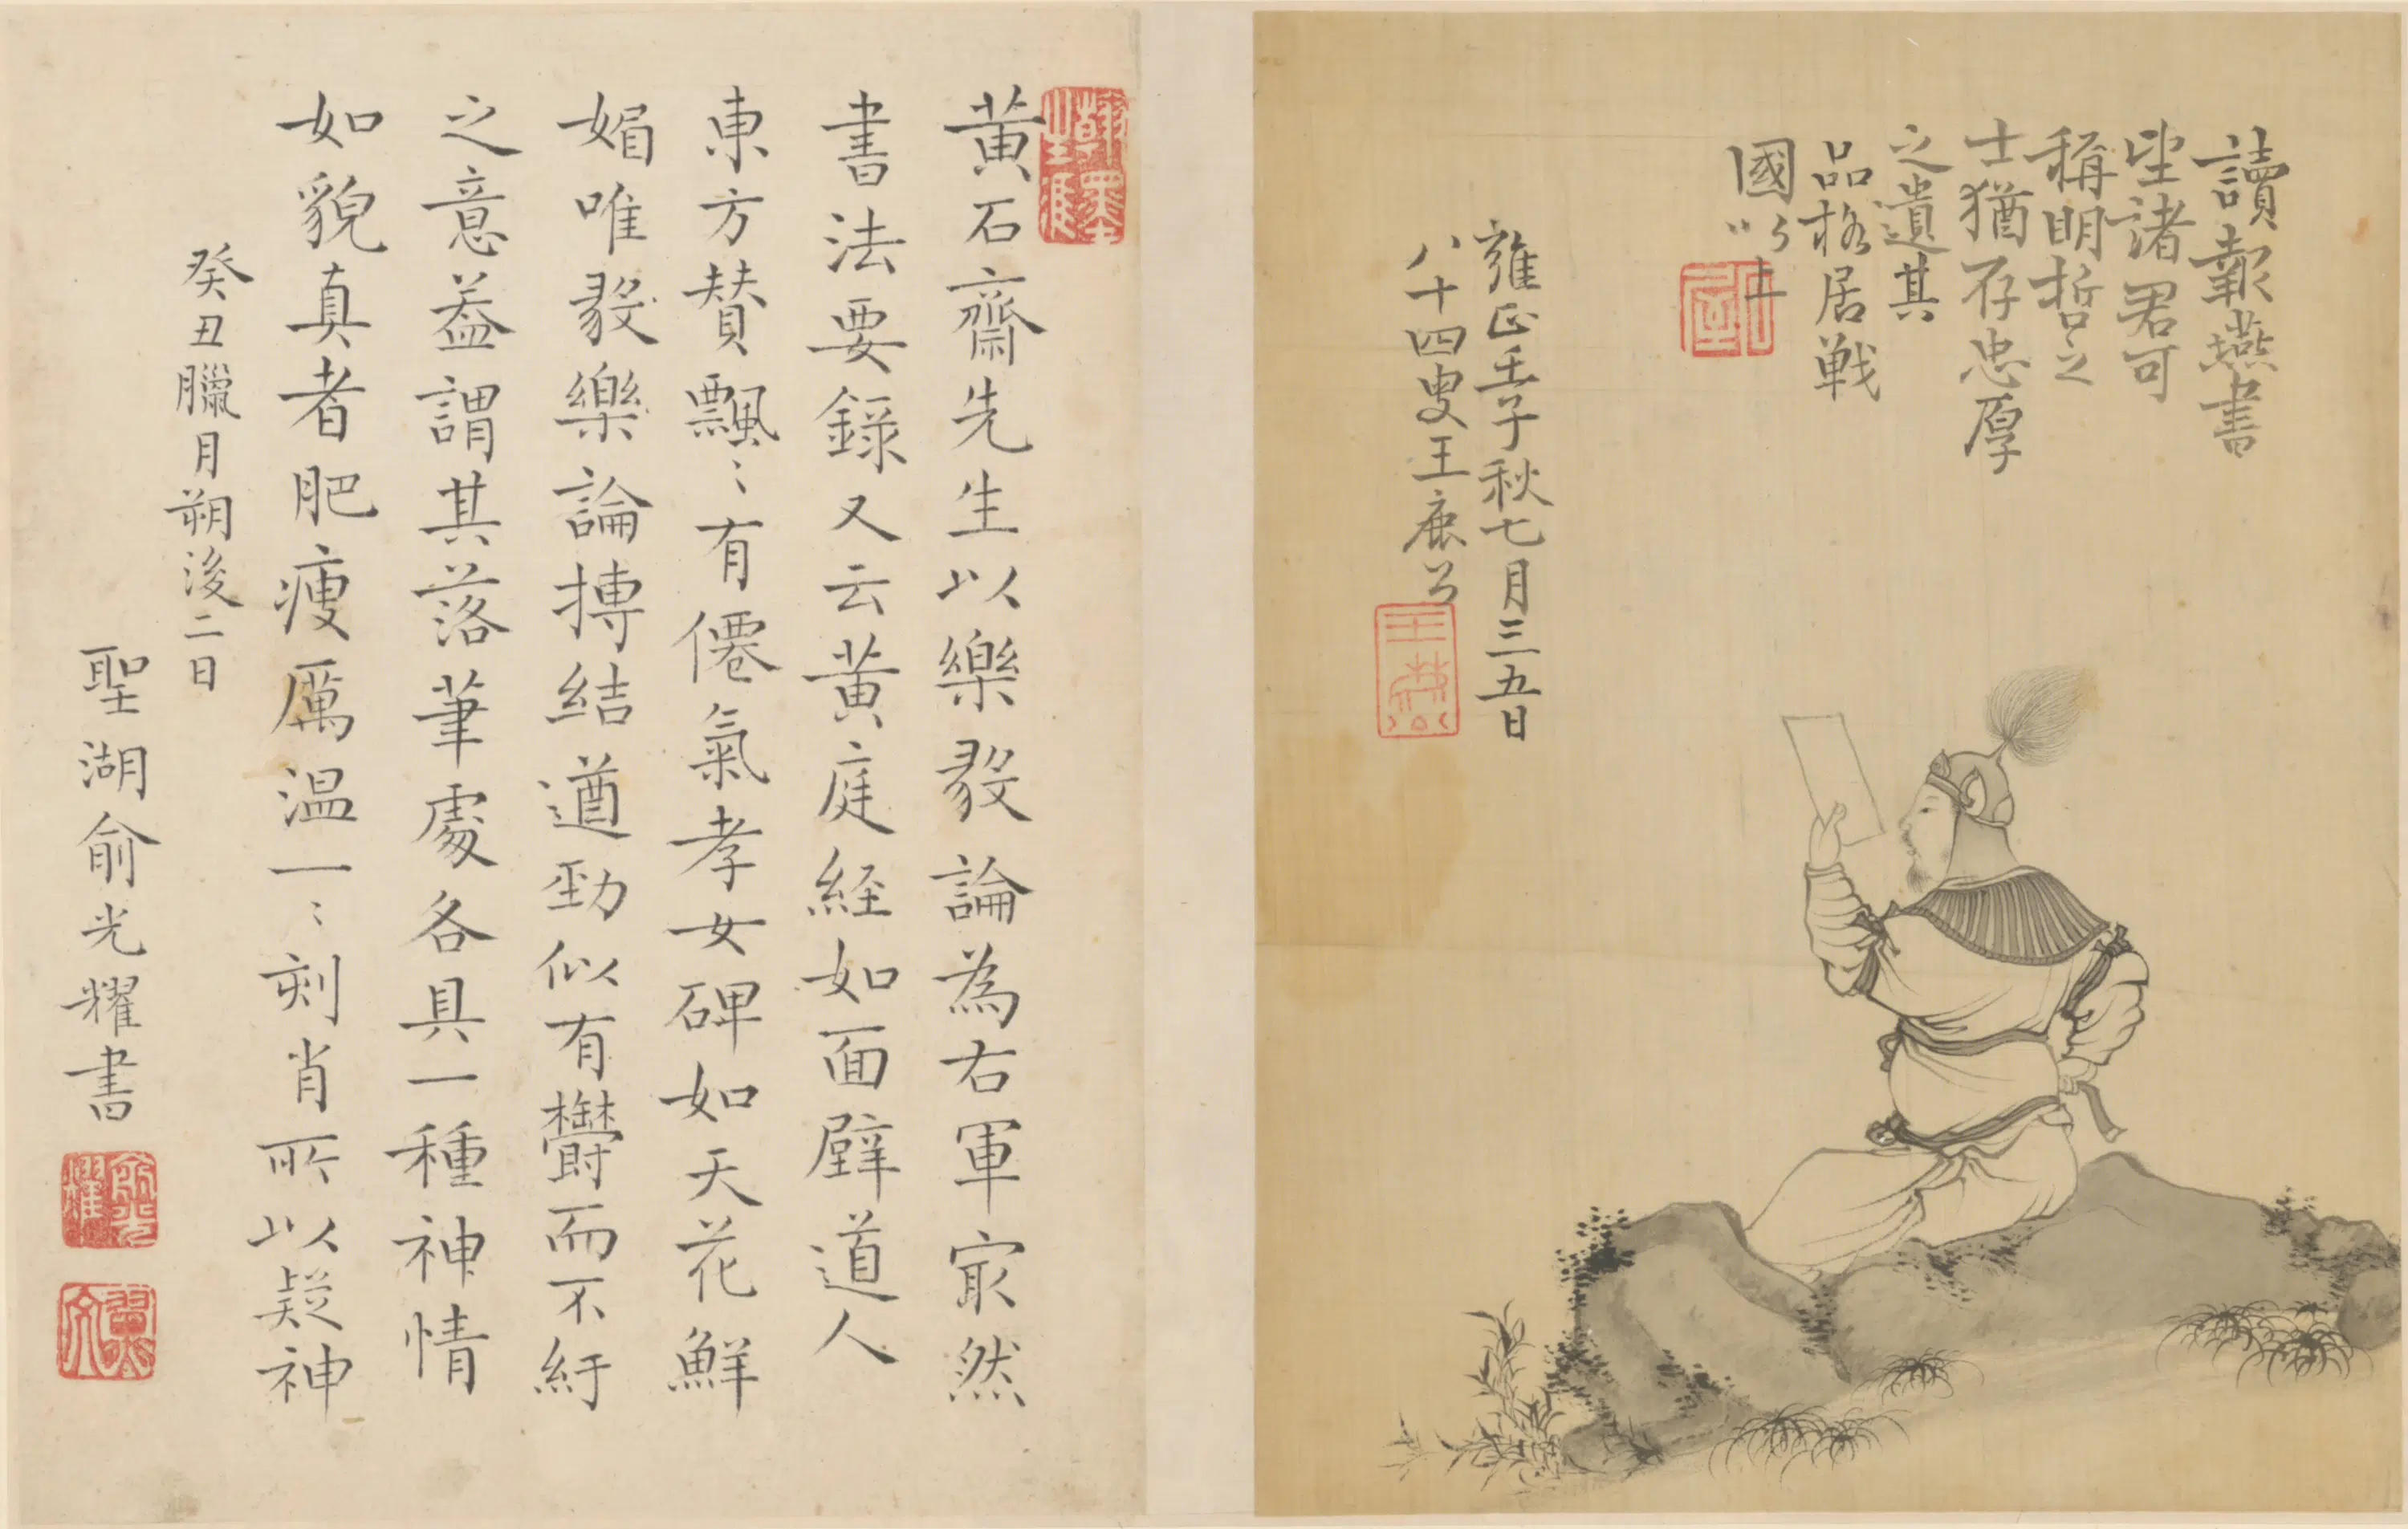 讀報燕書
望諸君可
稱明哲之
士猶存忠厚
之遺其
品格居戰
國以上
雍正壬子秋七月三五日
八十四叟王鹿公
黃石齋先生以樂毅論為右軍㝡然
書法要錄又云黃庭経如面壁道人
東方贊飄〻有僊氣孝女碑如天花鮮
媚唯毅樂論搏結遒勁似有欝而不紆
之意葢謂其落筆處各具一種神情
如貌真者肥瘦厲温一〻刻肖所以疑神
癸丑臘月朔後二日
聖湖俞光耀書